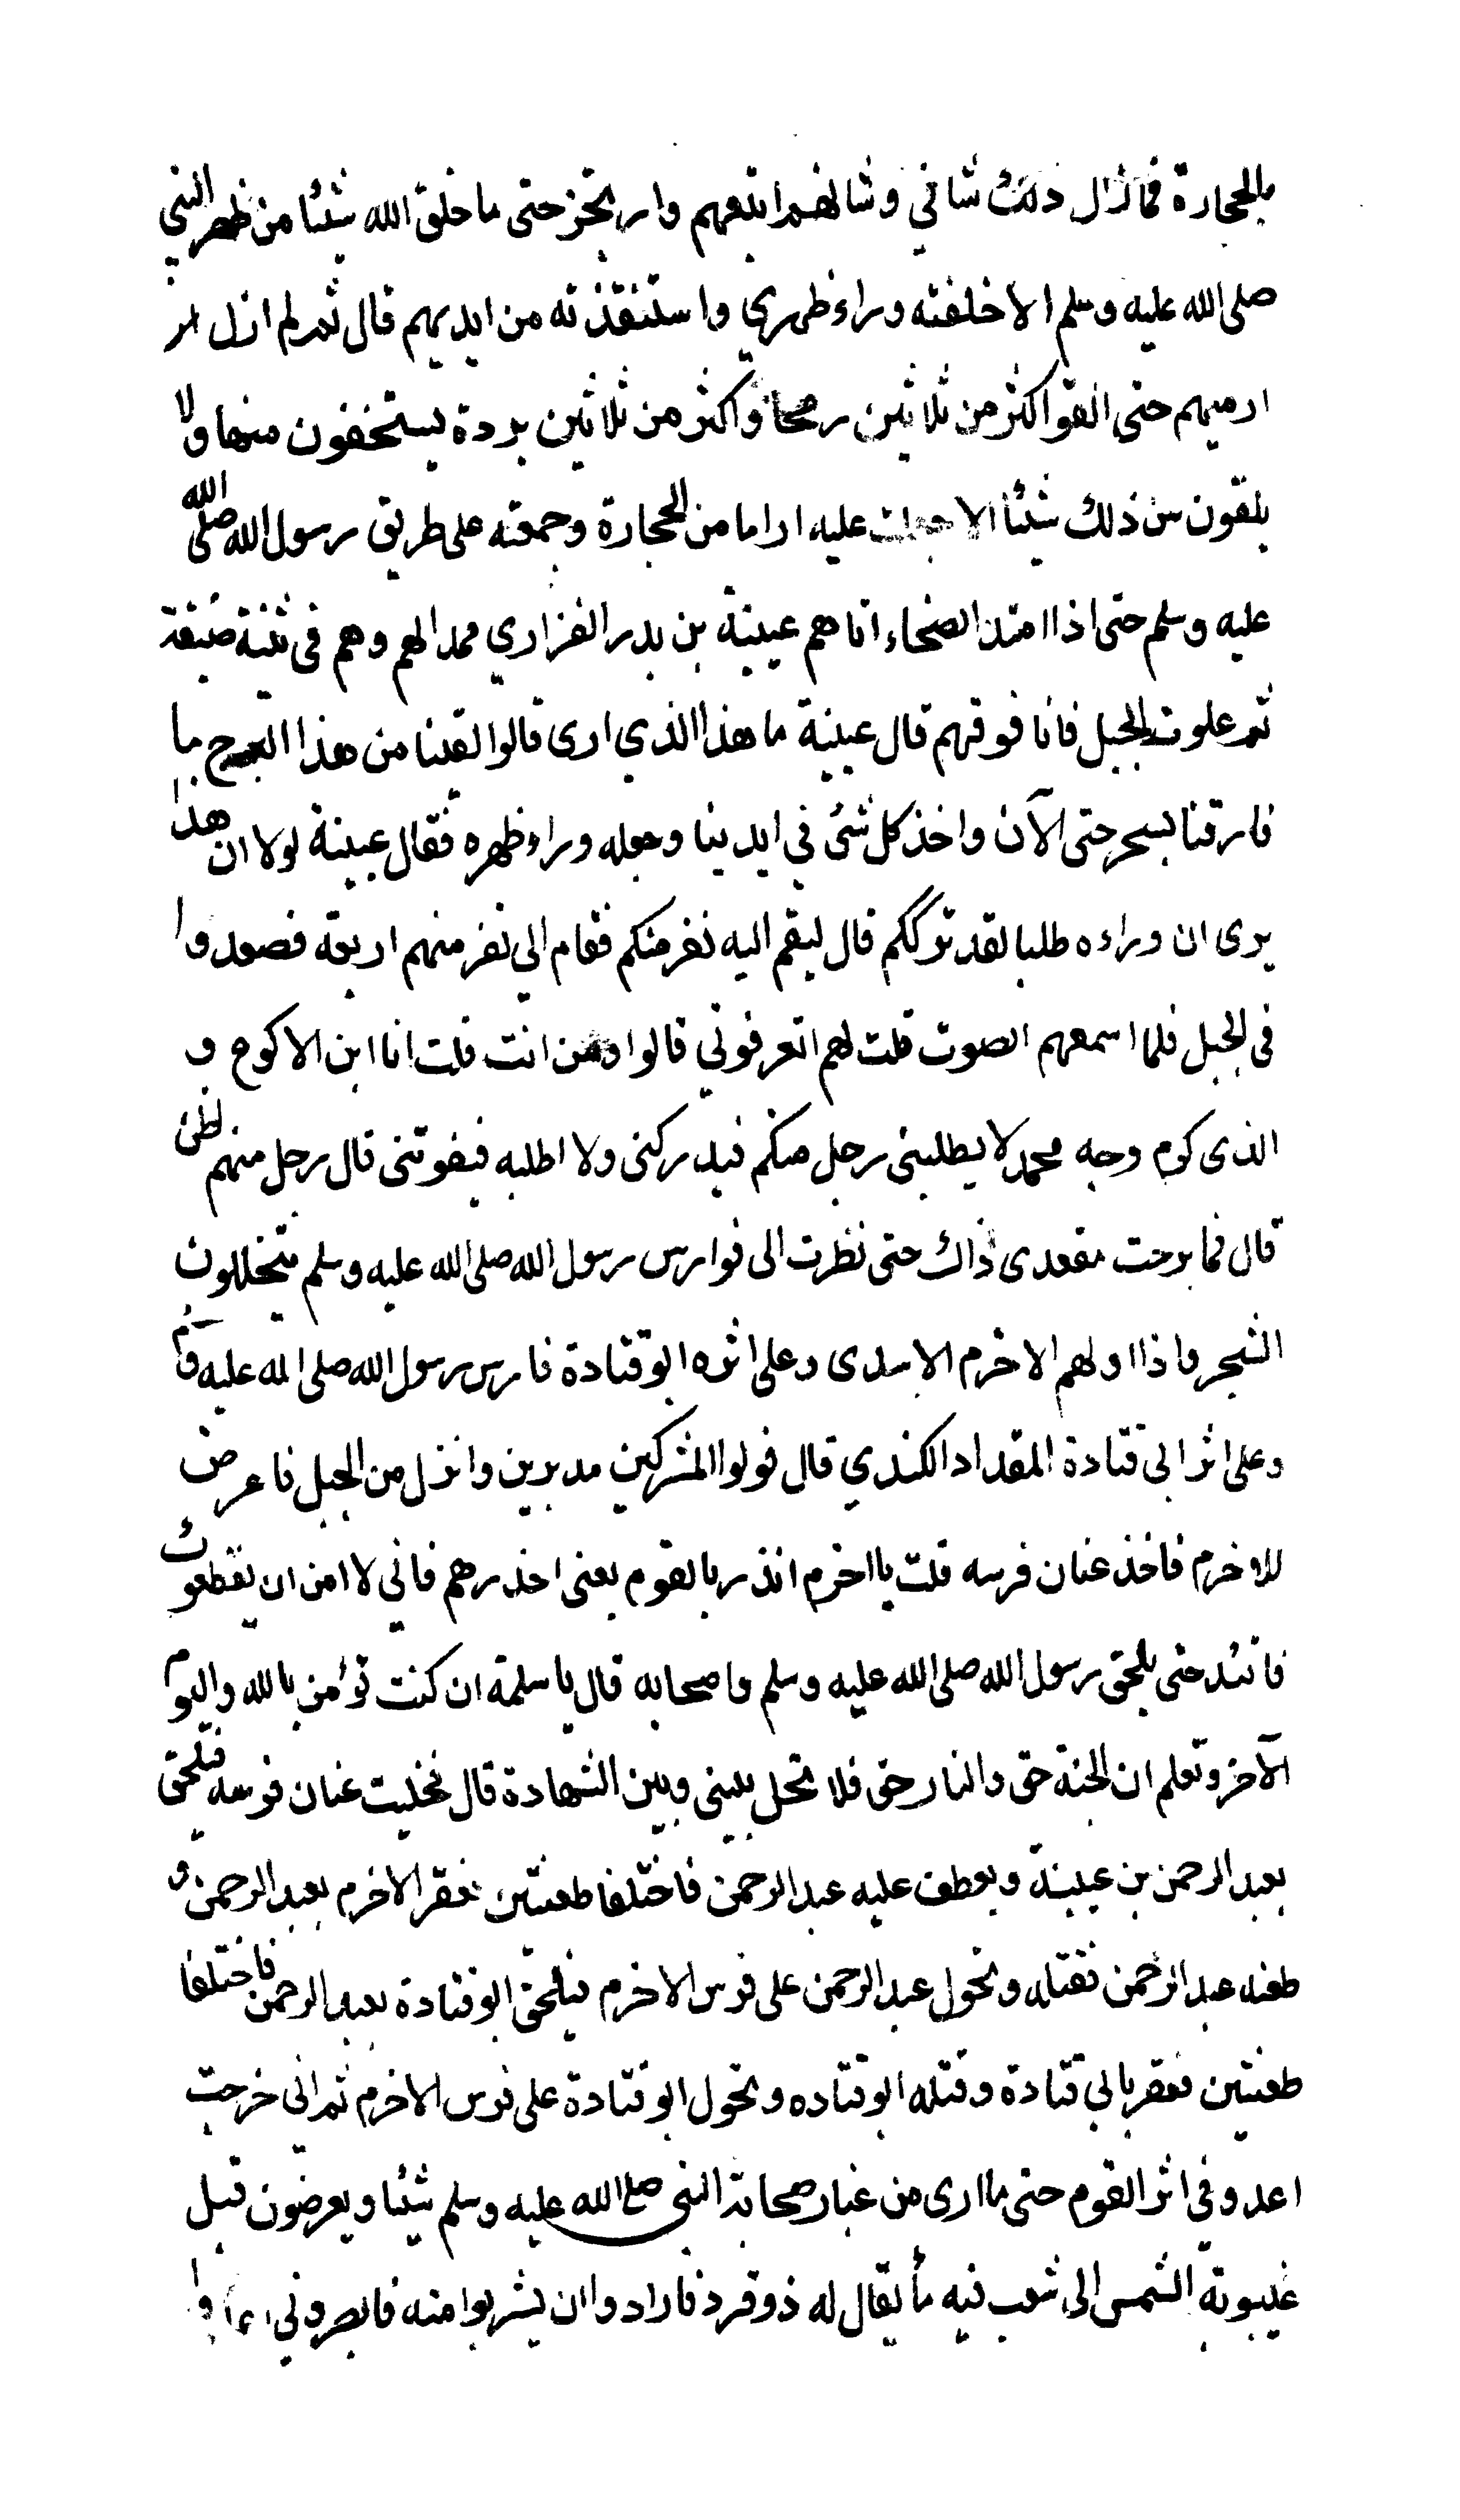 بالحجارة فما زال ذلك شاني وشانهم اتبعهم وارتجز حتى ما خلق الله شيئا من ظهر النبي
صلى الله عليه وسلم الا خلفته وراء ظهري واستنقذته من ايديهم قال ثم لم ازل
ارميهم حتى القوا اكثر من ثلاثين رمحا واكثر من ثلاثين بردة يستخفون منها ولا
يلقون من ذلك شيئا الا جعلت عليه اراما من الحجارة وجمعته على طريق رسول الله صلى الله
عليه وسلم حتى اذا امتد الضحاء اتاهم عيينة بن بدر الفزاري ممدا لهم وهم في ثنية ضيقة
ثم علوت الجبل فانا فوقهم قال عيينة ما هذا الذي ارى قالوا لقينا من هذا البرح ما
فارقنا بسحر حتى الآن واخذ كل شئ في ايدينا وجعله وراء ظهره فقال عيينة لولا ان هذا
يرى ان وراءه طلبا لقد ترككم قال ليقم اليه نفر منكم فقام الي نفر منهم اربعة فصعدوا
في الجبل فلما اسمعهم الصوت قلت لهم اتعرفوني قالوا ومن انت قلت انا ابن الاكوع و
الذى كرم وجه محمد لا يطلبني رجل منكم فيدركنى ولا اطلبه فيفوتنى قال رجل منهم اظن
قال فما برحت مقعدى ذاك حتى نظرت الى فوارس رسول الله صلى الله عليه وسلم يتخللون
الشجر واذا اولهم الاخرم الاسدى وعلى اثره ابو قتادة فارس رسول الله صلى الله عليه وسلم
وعلى اثر ابي قتادة المقداد الكندي قال فولوا المشركين مدبرين وانزل من الجبل فاعرض
للاخرم فاخذ عنان فرسه قلت يا اخرم انذر بالقوم يعنى احذرهم فاني لا امن ان يقطعوك
فاتئد حتى يلحق رسول الله صلى الله عليه وسلم واصحابه قال يا سلمة ان كنت تؤمن بالله واليوم
الآخر وتعلم ان الجنة حق والنار حق فلا تحل بيني وبين الشهادة قال فخليت عنان فرسه فيلحق
بعبد الرحمن بن عيينة ويعطف عليه عبد الرحمن فاختلفا طعنتين فعقر الاخرم بعبد الرحمن و
طعنه عبد الرحمن فقتله وتحول عبد الرحمن على فرس الاخرم فيلحق ابو قتادة بعبد الرحمن فاختلفا
طعنتين فعقر بابي قتادة وقتله ابو قتاده وتحول ابو قتادة على فرس الاخرم ثم انى خرجت
اعدو في اثر القوم حتى ما ارى من غبار صحابة النبي صلع الله عليه وسلم شيئا ويعرضون قبل
غيبوبة الشمس الى شعب فيه ماء يقال له ذو قرد فارادوا ان يشربوا منه فابصروني